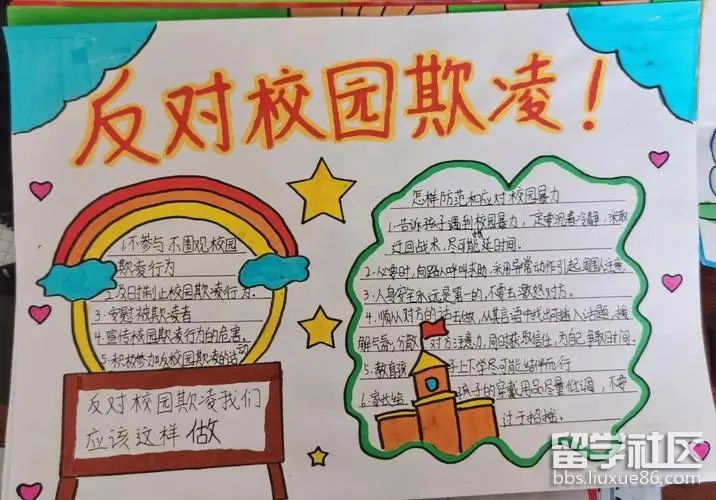 反对校园欺凌！
1.不参与 不围观校园
欺凌行为
2.及时制止校园欺凌行为.
3.安慰被欺凌者
4.宣传校园欺凌行为的危害.
5.积极参加反校园欺凌的活动
反对校园欺凌我们
应该这样 做
怎样防范和应对校园暴力
1.告诉孩子遇到校园暴力，一定要沉着冷静，采取
迂回战术，尽可能拖延时间.
2.必要时，向路人呼叫求助，采用异常动作引起周围人注意.
3.人身安全永远是第一的，不要去激怒对方.
4.顺从对方的话去做，从其言语中找出可插入话题，缓
解气氛，分散对方注意力，同时获取信任，为自己争取时间.
5.教育孩子上下学尽可能结伴而行
6.家长给孩子的穿戴用品尽量低调，不要
过于招摇.
留学社区
bbs.liuxue86.com